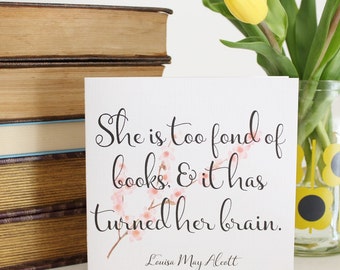 She is too fond of
books, & it has
turned her brain.
Louisa May Alcott